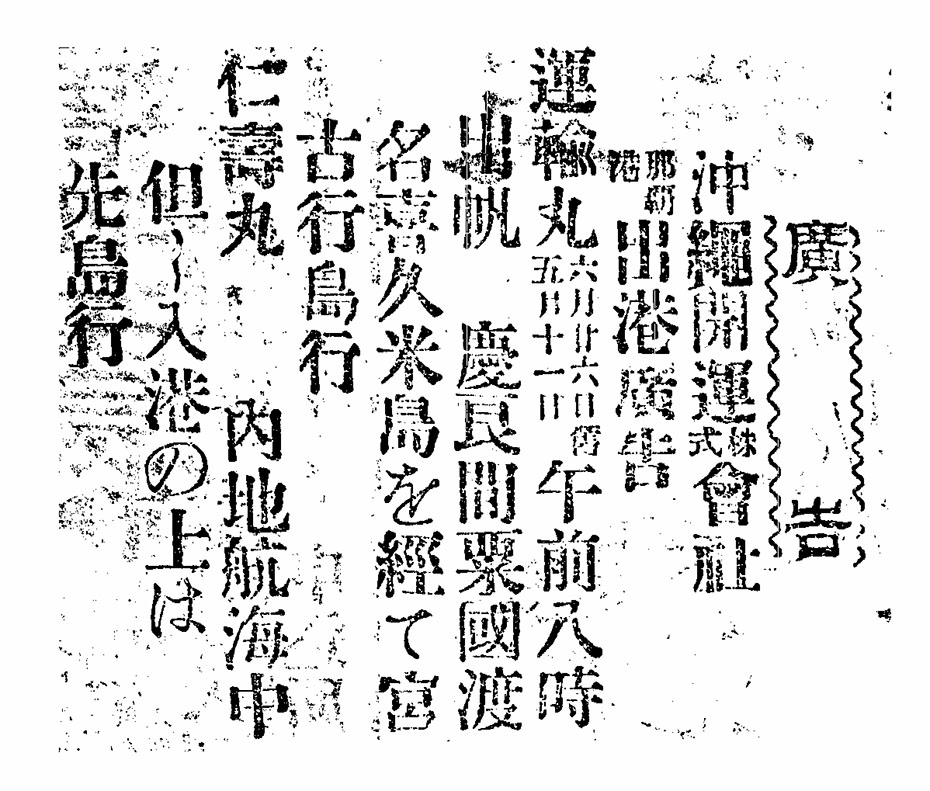 廣告
沖繩開運株式會社
那覇港出港廣告
運輸丸六月廿六日舊五月十一日午前八時
出帆 慶良間粟國渡
名喜久米島を經て宮
古行島行
仁壽丸 內地航海中
但し入港の上は
先島行